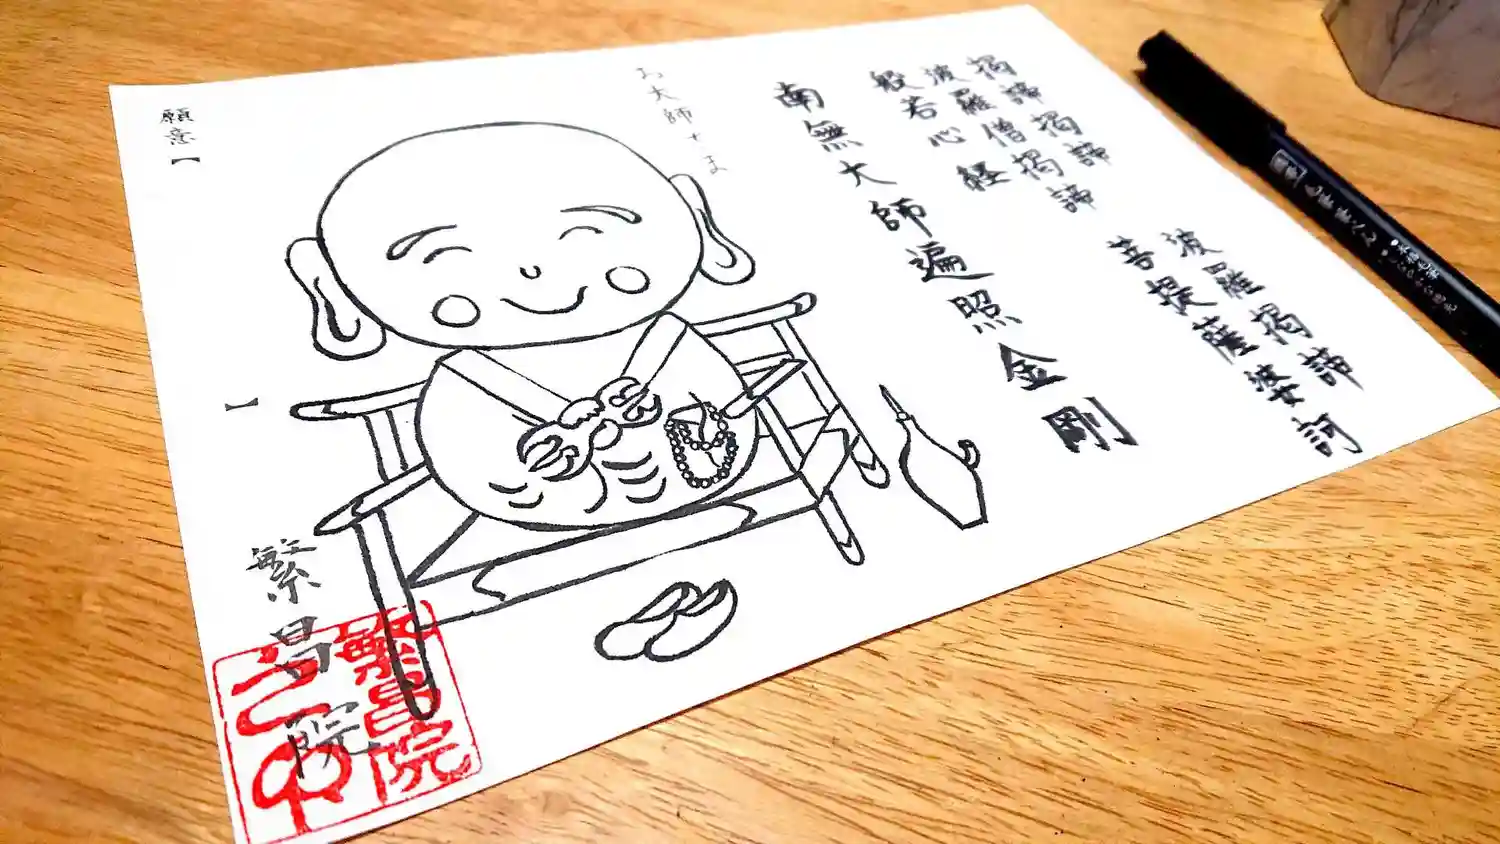 掲諦掲諦　波羅掲諦
波羅僧掲諦　菩提薩婆訶
般若心経
南無大師遍照金剛
お大師さま
願意【　】
繁昌院
繁昌院之印